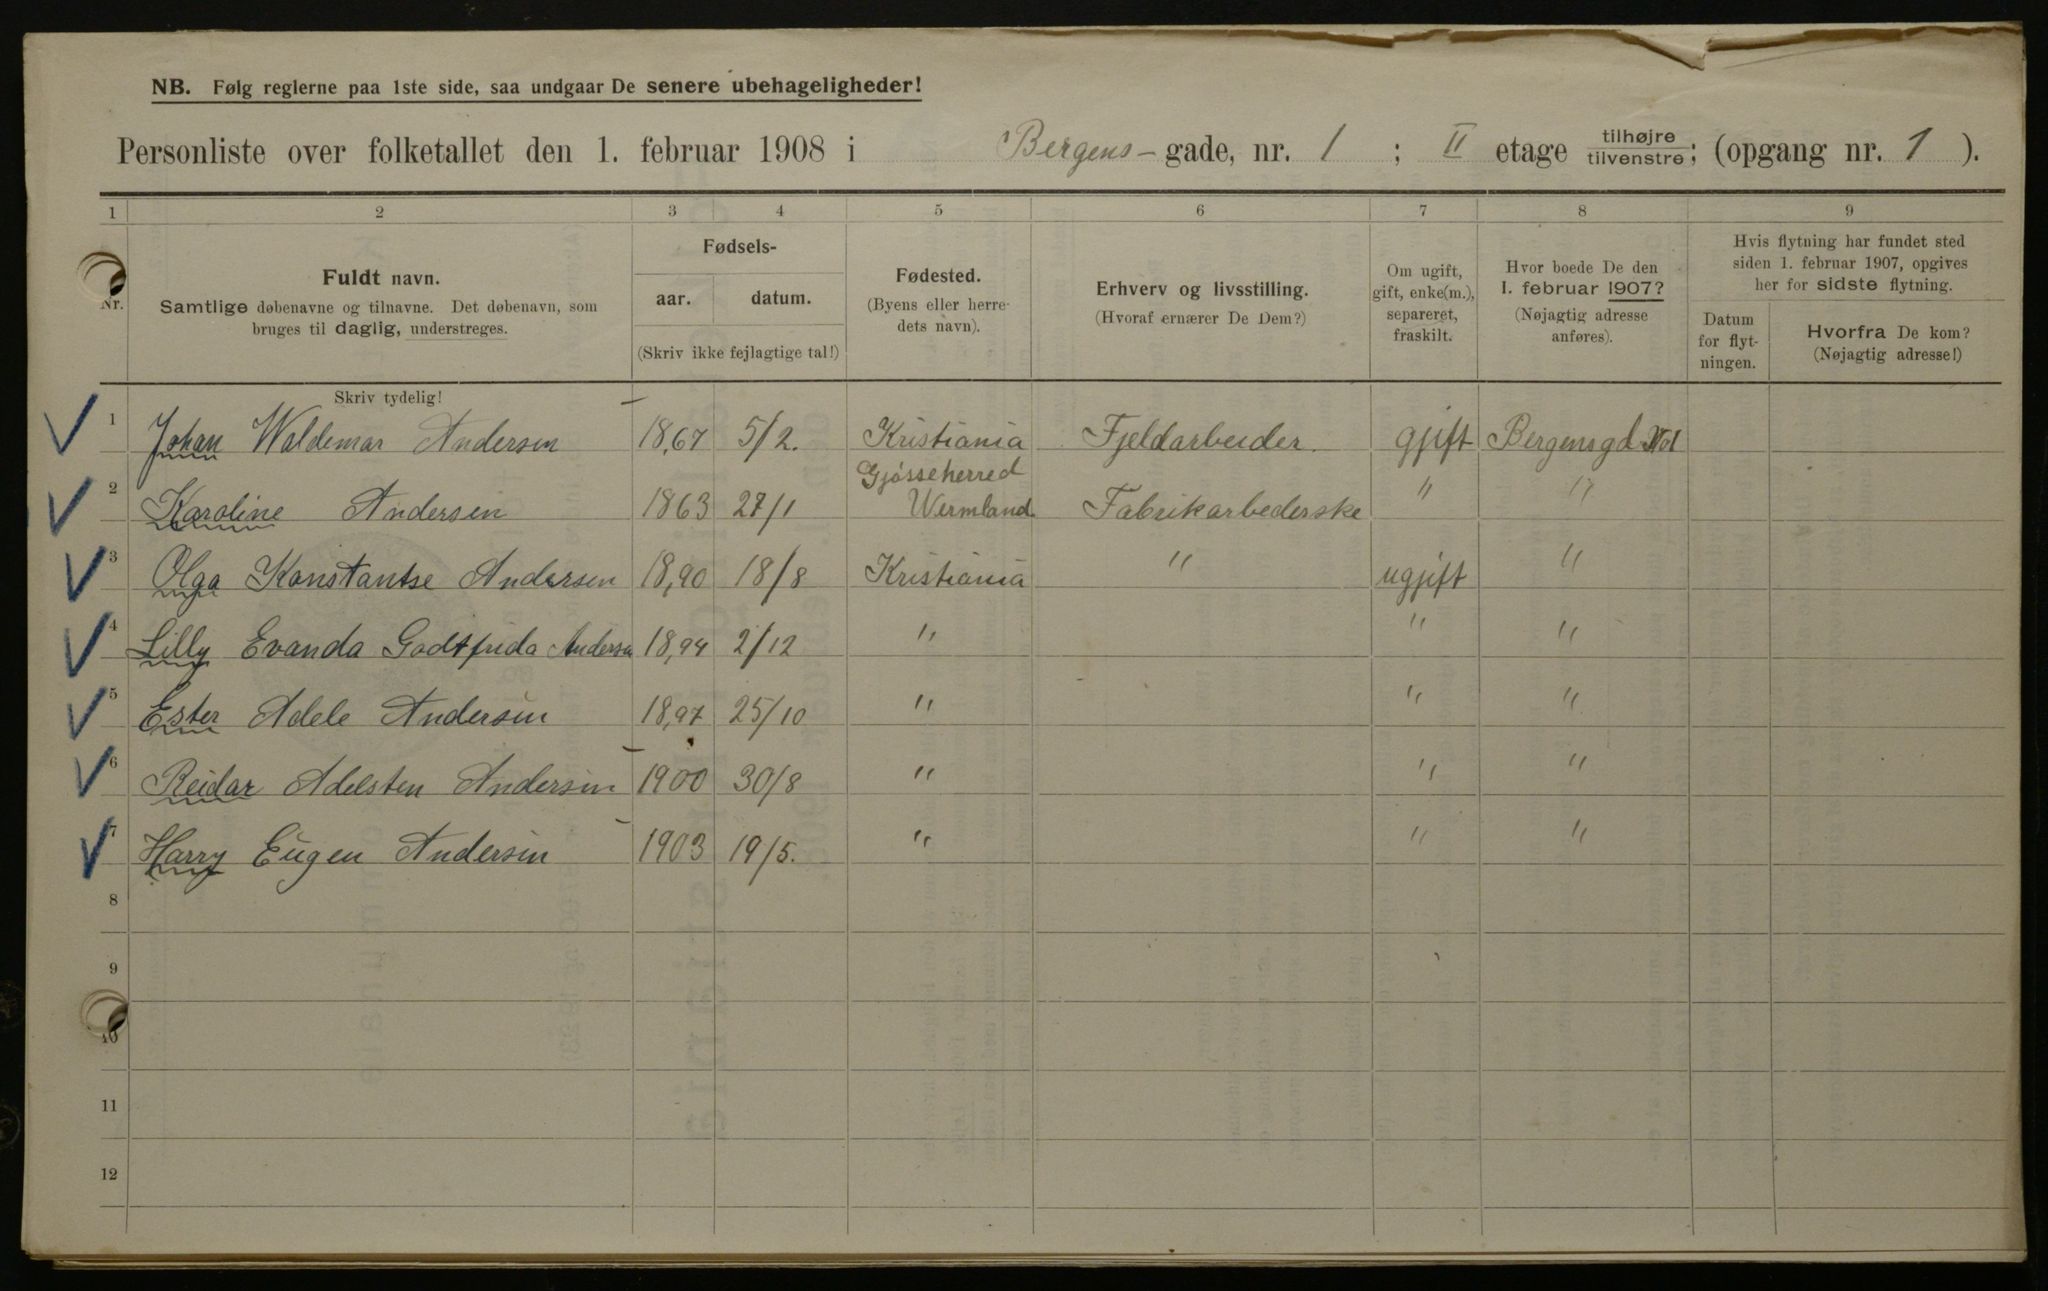 NB. Følg reglerne paa 1ste side, saa undgaar De senere ubehageligheder!
Personliste over folketallet den 1. februar 1908 i Bergens-gade, nr. 1 ; II etage tilhøjre tilvenstre; (opgang nr. 1 ).
1 2 3 4 5 6 7 8 9
Nr.
Fuldt navn.
Samtlige døbenavne og tilnavne. Det døbenavn, som
bruges til daglig, understreges.
Skriv tydelig!
Fødsels-
aar. datum.
(Skriv ikke fejlagtige tal!)
Fødested.
(Byens eller herre-
dets navn).
Erhverv og livsstilling.
(Hvoraf ernærer De Dem?)
Om ugift,
gift, enke(m.),
separeret,
fraskilt.
Hvor boede De den
1. februar 1907?
(Nøjagtig adresse
anføres).
Hvis flytning har fundet sted
siden 1. februar 1907, opgives
her for sidste flytning.
Datum
for flyt-
ningen.
Hvorfra De kom?
(Nøjagtig adresse!)
1 Johan Waldemar Andersen 18,67 5/2. Kristiania Fjeldarbeider. gjift Bergensgd No1
Gjösseherred
2 Karoline Andersen 1863 27/1 Wermland. Fabrikarbederske " "
3 Olga Konstantse Andersen 18,90 18/8 Kristiania " ugjift "
4 Lilly Evanda Godtfrida Andersen 18,94 2/12 " " "
5 Ester Adele Andersen 18,97 25/10 " " "
6 Reidar Adelsten Andersen 1900 30/8 " " "
7 Harry Eugen Andersen 1903 19/5. " " "
8
9
10
11
12